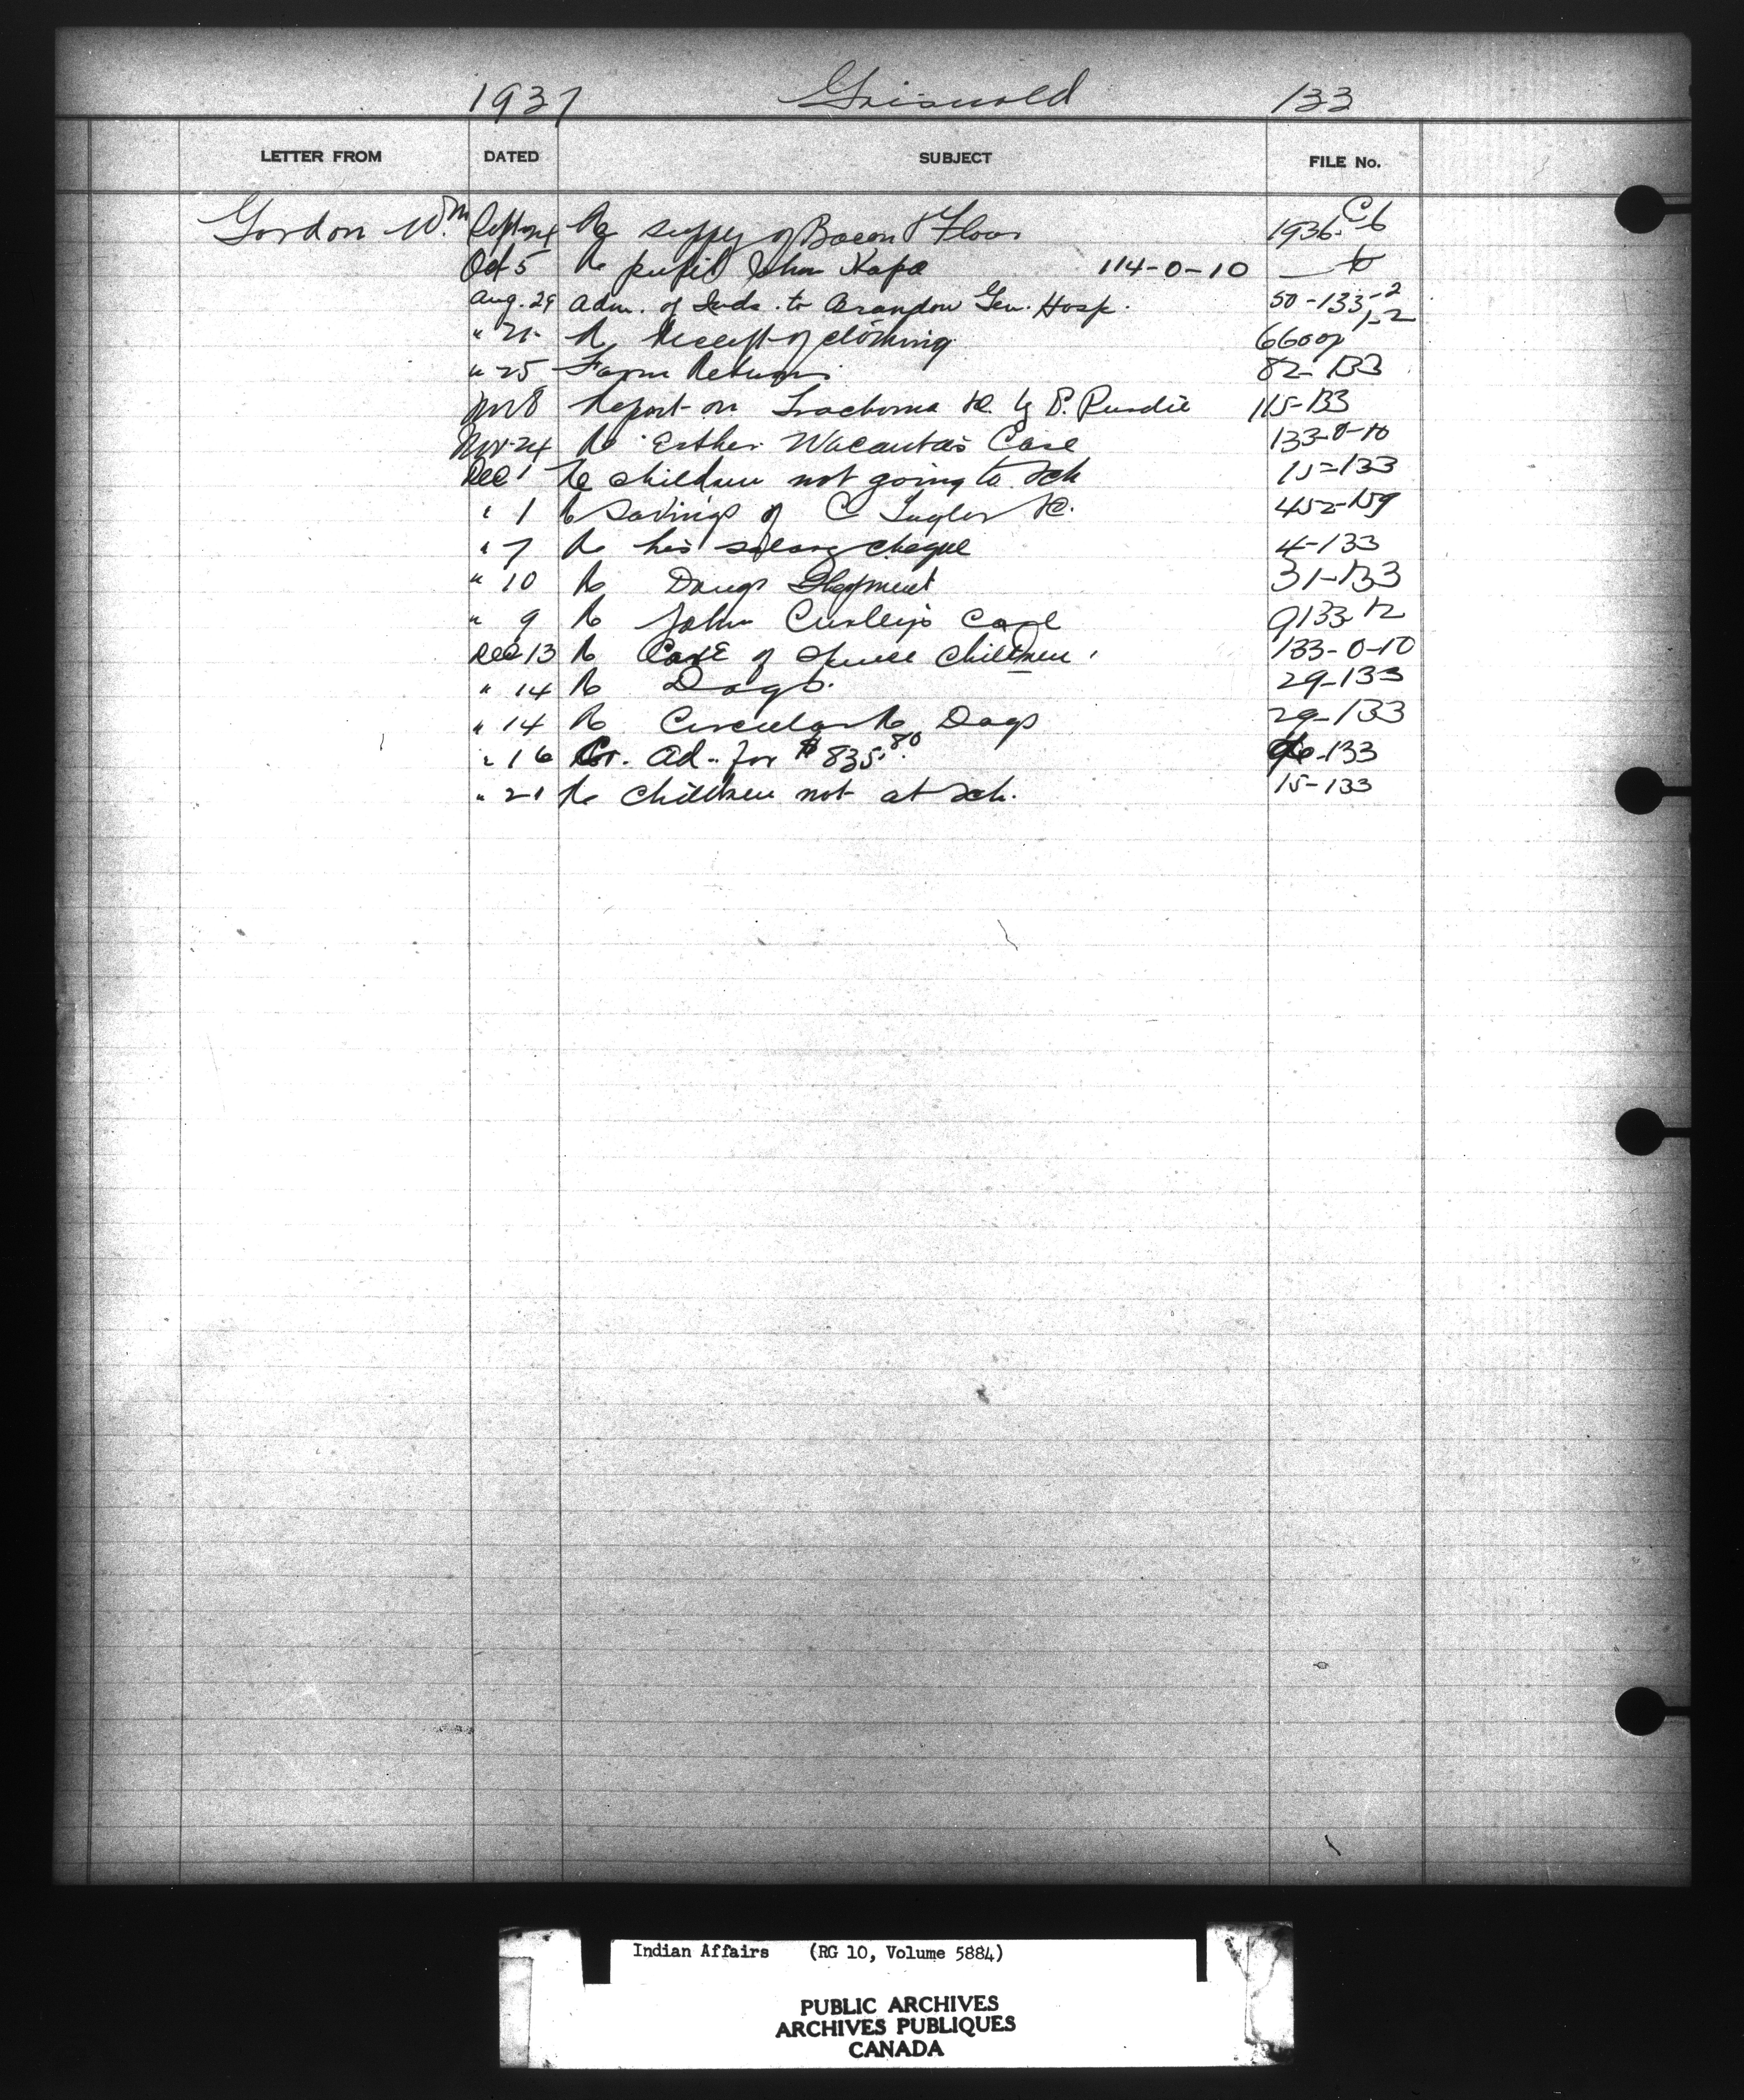 1937 Griswold 133
LETTER FROM DATED SUBJECT FILE No.
Gordon Wm Re supply of Bacon & Flour 1936-C6
Oct 5 Re pupil John Kapa 114-0-10
Aug. 29 Adm. of Inds. to Brandon Gen. Hosp. 50-133-2
" 21 Re Receipt of clothing
" 25 Farm Returns 82-133
Nov 8 Report on Trachoma Re. by P. Purdie 115-133
Nov 24 Re Esther Wacanta's Case 133-0-10
Dec 1 Re children not going to Sch 15-133
" 1 Re Savings of C 452-159
" 7 Re his salary cheque 4-133
" 10 Re Drugs Shipment 31-133
" 9 Re John Curley's Case
Dec 13 Re Case of Children 133-0-10
" 14 Re Dogs. 29-133
" 14 Re Circular Re Dogs 29-133
" 16 Cr. Ad. for $835.80 -133
" 21 Re Children not at Sch. 15-133
Indian Affairs (RG 10, Volume 5884)
PUBLIC ARCHIVES
ARCHIVES PUBLIQUES
CANADA